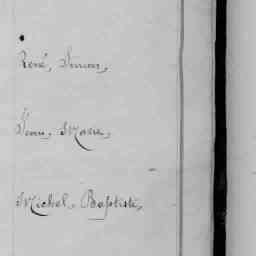 René, Simon,
Jean, Marie,
Michel, Baptiste,